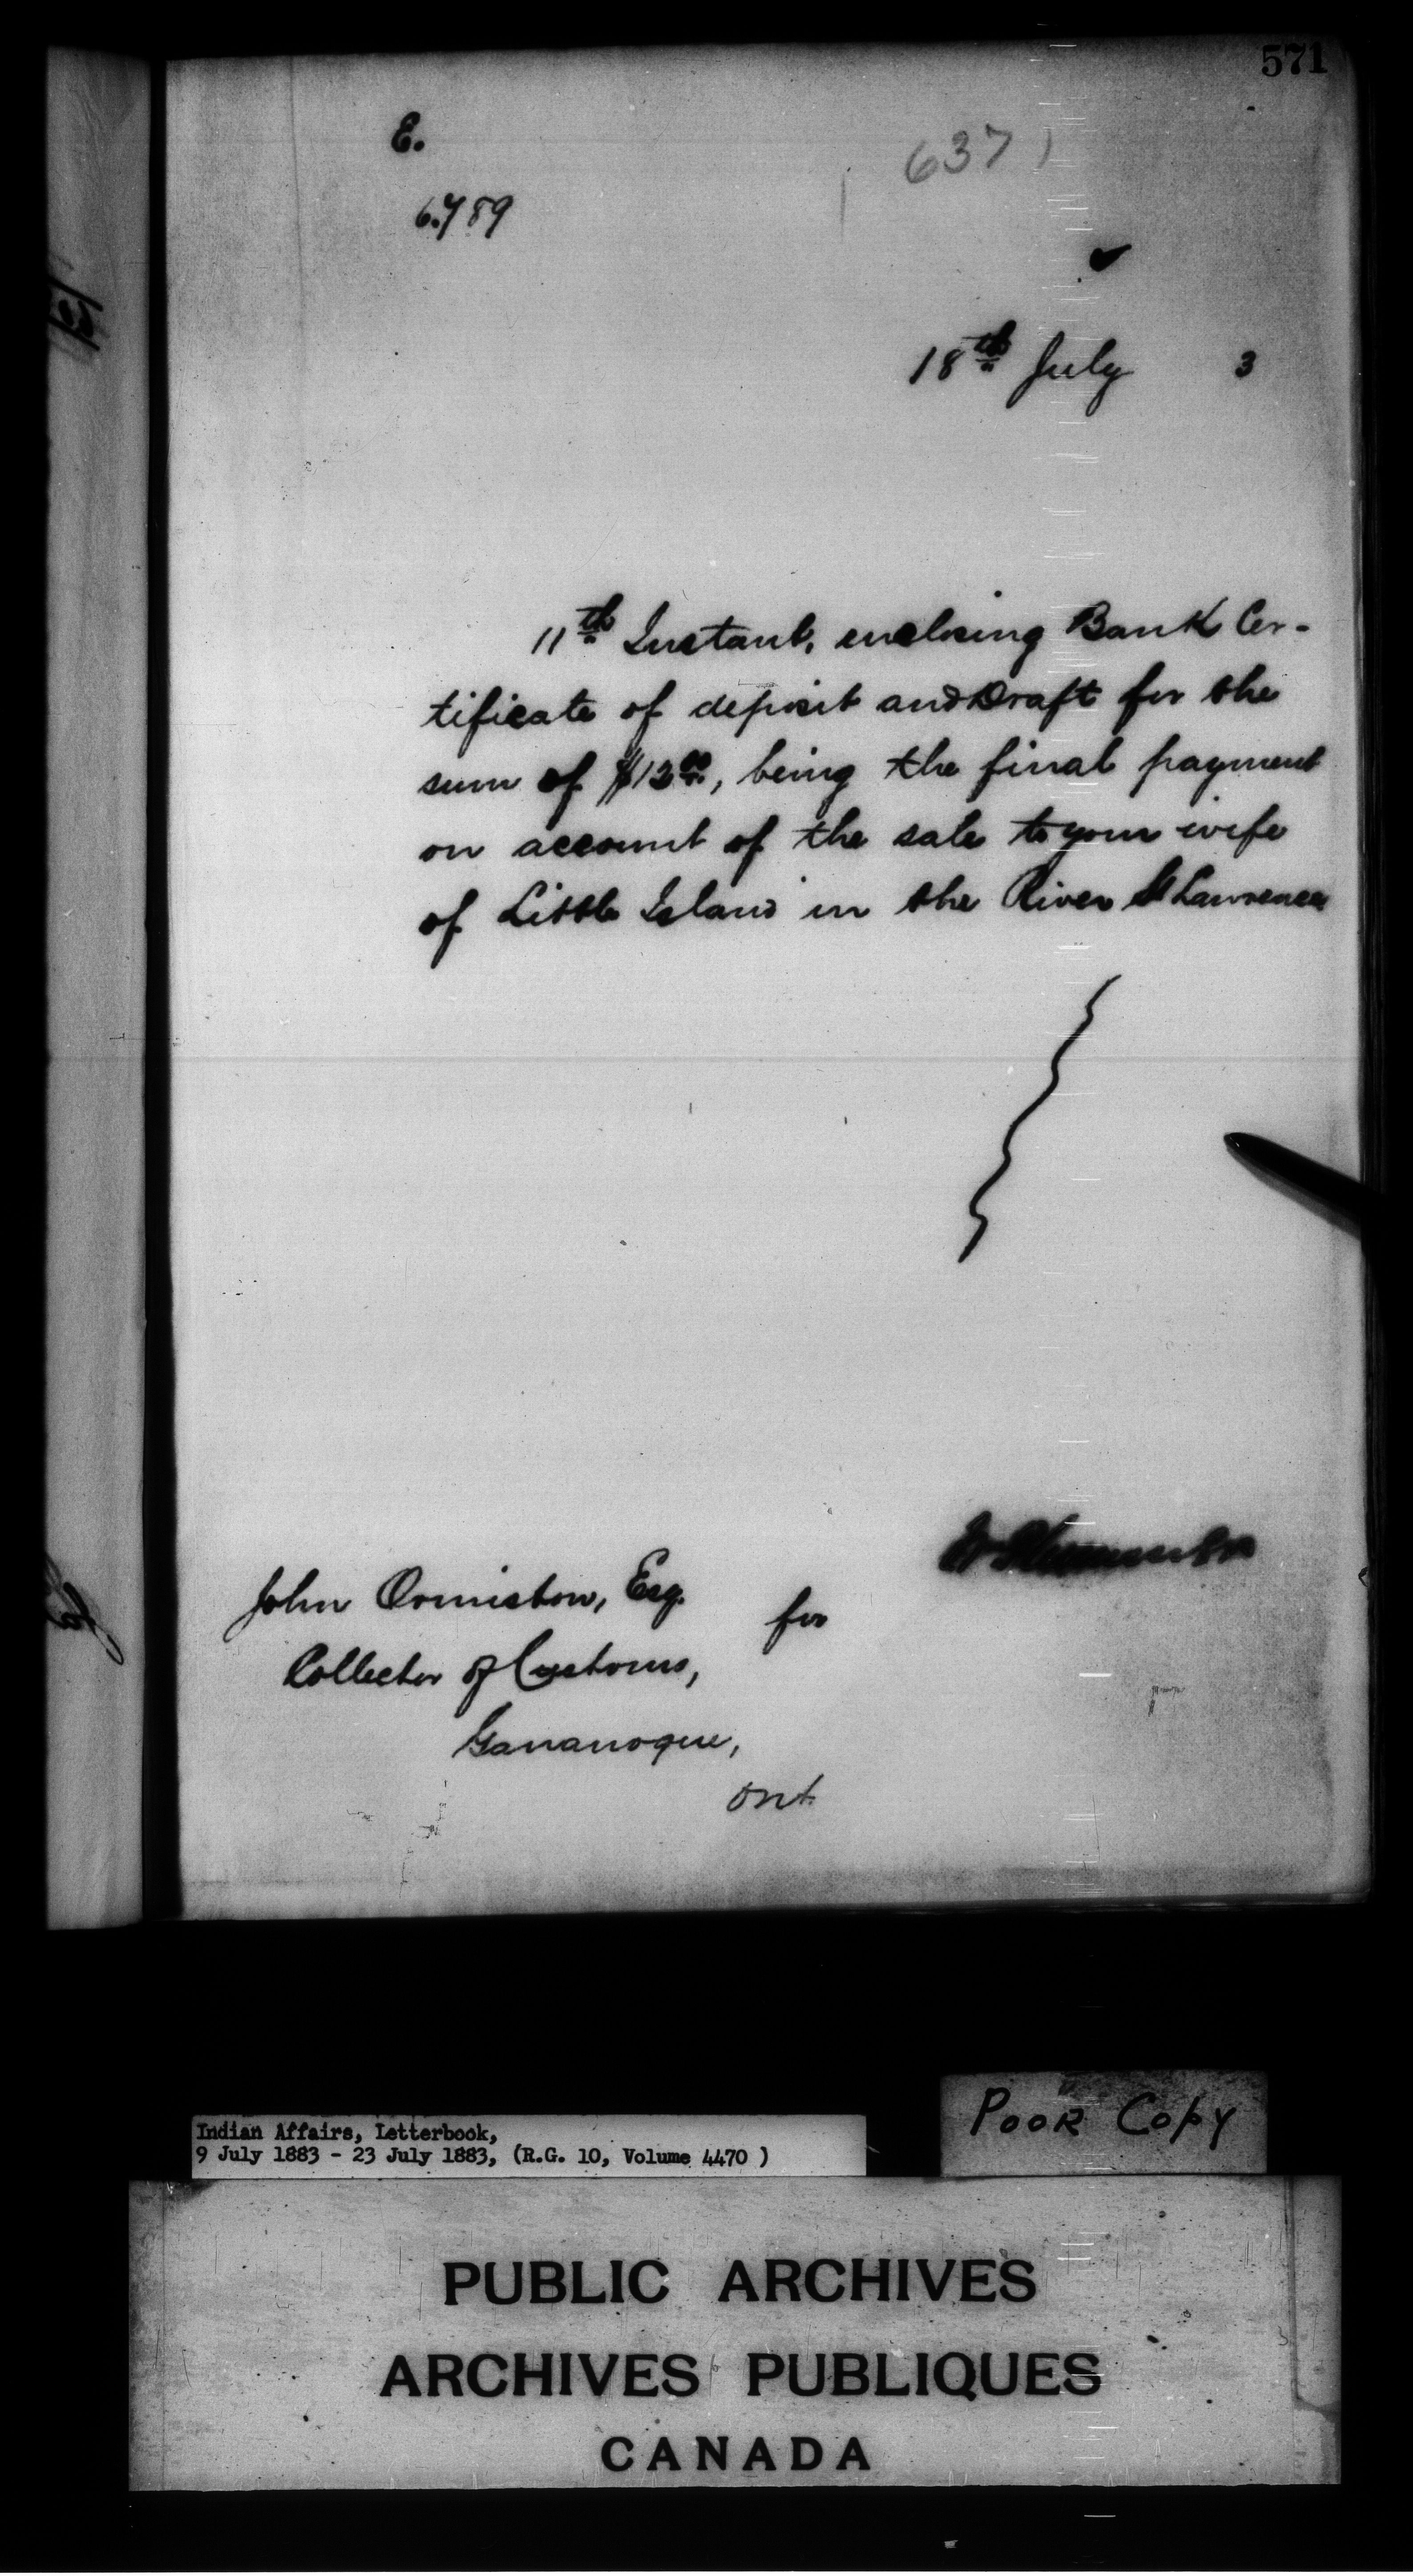 571
E.
637
6.789
18th July 3
11th Instant, enclosing Bank Cer-
tificate of deposit and Draft for the
sum of $12.00, being the final payment
on account of the sale to your wife
of Little Island in the River St Lawrence
John Ormiston, Esq. for
Collector of Customs,
Gananoque,
Ont.
Poor Copy
Indian Affairs, Letterbook,
9 July 1883 - 23 July 1883, (R.G. 10, Volume 4470 )
PUBLIC ARCHIVES
ARCHIVES PUBLIQUES
CANADA